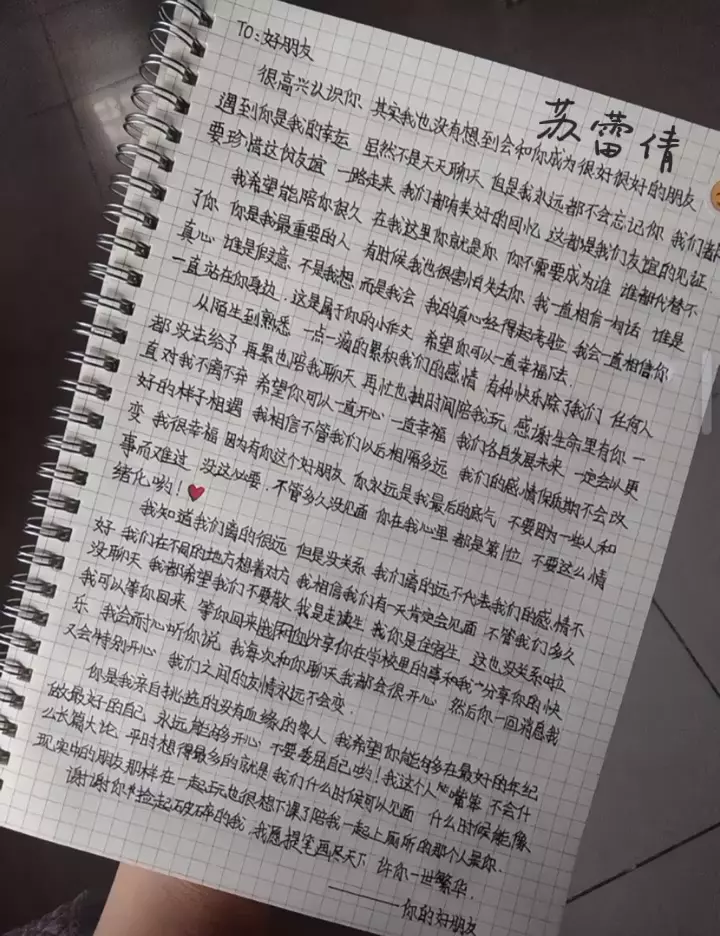 TO:好朋友
苏蕾倩
很高兴认识你 其实我也没有想到会和你成为很好很好的朋友
遇到你是我的幸运 虽然不是天天聊天 但是我永远都不会忘记你 我们都
要珍惜这份友谊 一路走来 我们都有美好的回忆 这都是我们友谊的见证.
我希望能陪你很久 在我这里你就是你 你不需要成为谁 谁都代替不
了你 你是我最重要的人 有时候我也很害怕失去你 我一直相信一句话 谁是
真心 谁是假意 不是我想 而是我会 我的真心经得起考验 我会一直相信你
一直站在你身边. 这是属于你的小作文 希望你可以一直幸福下去.
从陌生到熟悉 一点一滴的累积我们的感情 有种快乐除了我们 任何人
都没法给予 再累也陪我聊天 再忙也抽时间陪我玩 感谢生命里有你 一
直对我不离不弃 希望你可以一直开心 一直幸福 我们各自发展未来 一定会以更
好的样子相遇 我相信不管我们以后相隔多远 我们的感情保质期不会改
变 我很幸福 因为有你这个好朋友 你永远是我最后的底气 不要因为一些人和
事而难过 没这必要. 不管多久没见面 你在我心里 都是第1位 不要这么情
绪化哟!❤️
我知道我们离的很远 但是没关系 我们离的远不代表我们的感情不
好 我们在不同的地方想着对方 我相信我们有一天肯定会见面 不管我们多久
没聊天 我都希望我们不要散 我是走读生 我你是住宿生 这也没关系啦
我可以等你回来 等你回来 分享你在学校里的事和我 分享你的快
乐 我会耐心听你说 我每次和你聊天我都会很开心 然后你一回消息我
又会特别开心 我们之间的友情永远不会变.
你是我亲自挑选的没有血缘的家人 我希望你能够在最好的年纪
做最好的自己 永远能够开心 不要委屈自己哟!我这个人 嘴笨 不会什
么长篇大论 平时想得最多的就是我们什么时候可以见面 什么时候能像
现实中的朋友那样在一起玩也很想下课了陪我一起上厕所的那个人是你.
谢谢你 捡起破碎的我 我愿提笔画尽天下 许你一世繁华.
——你的好朋友